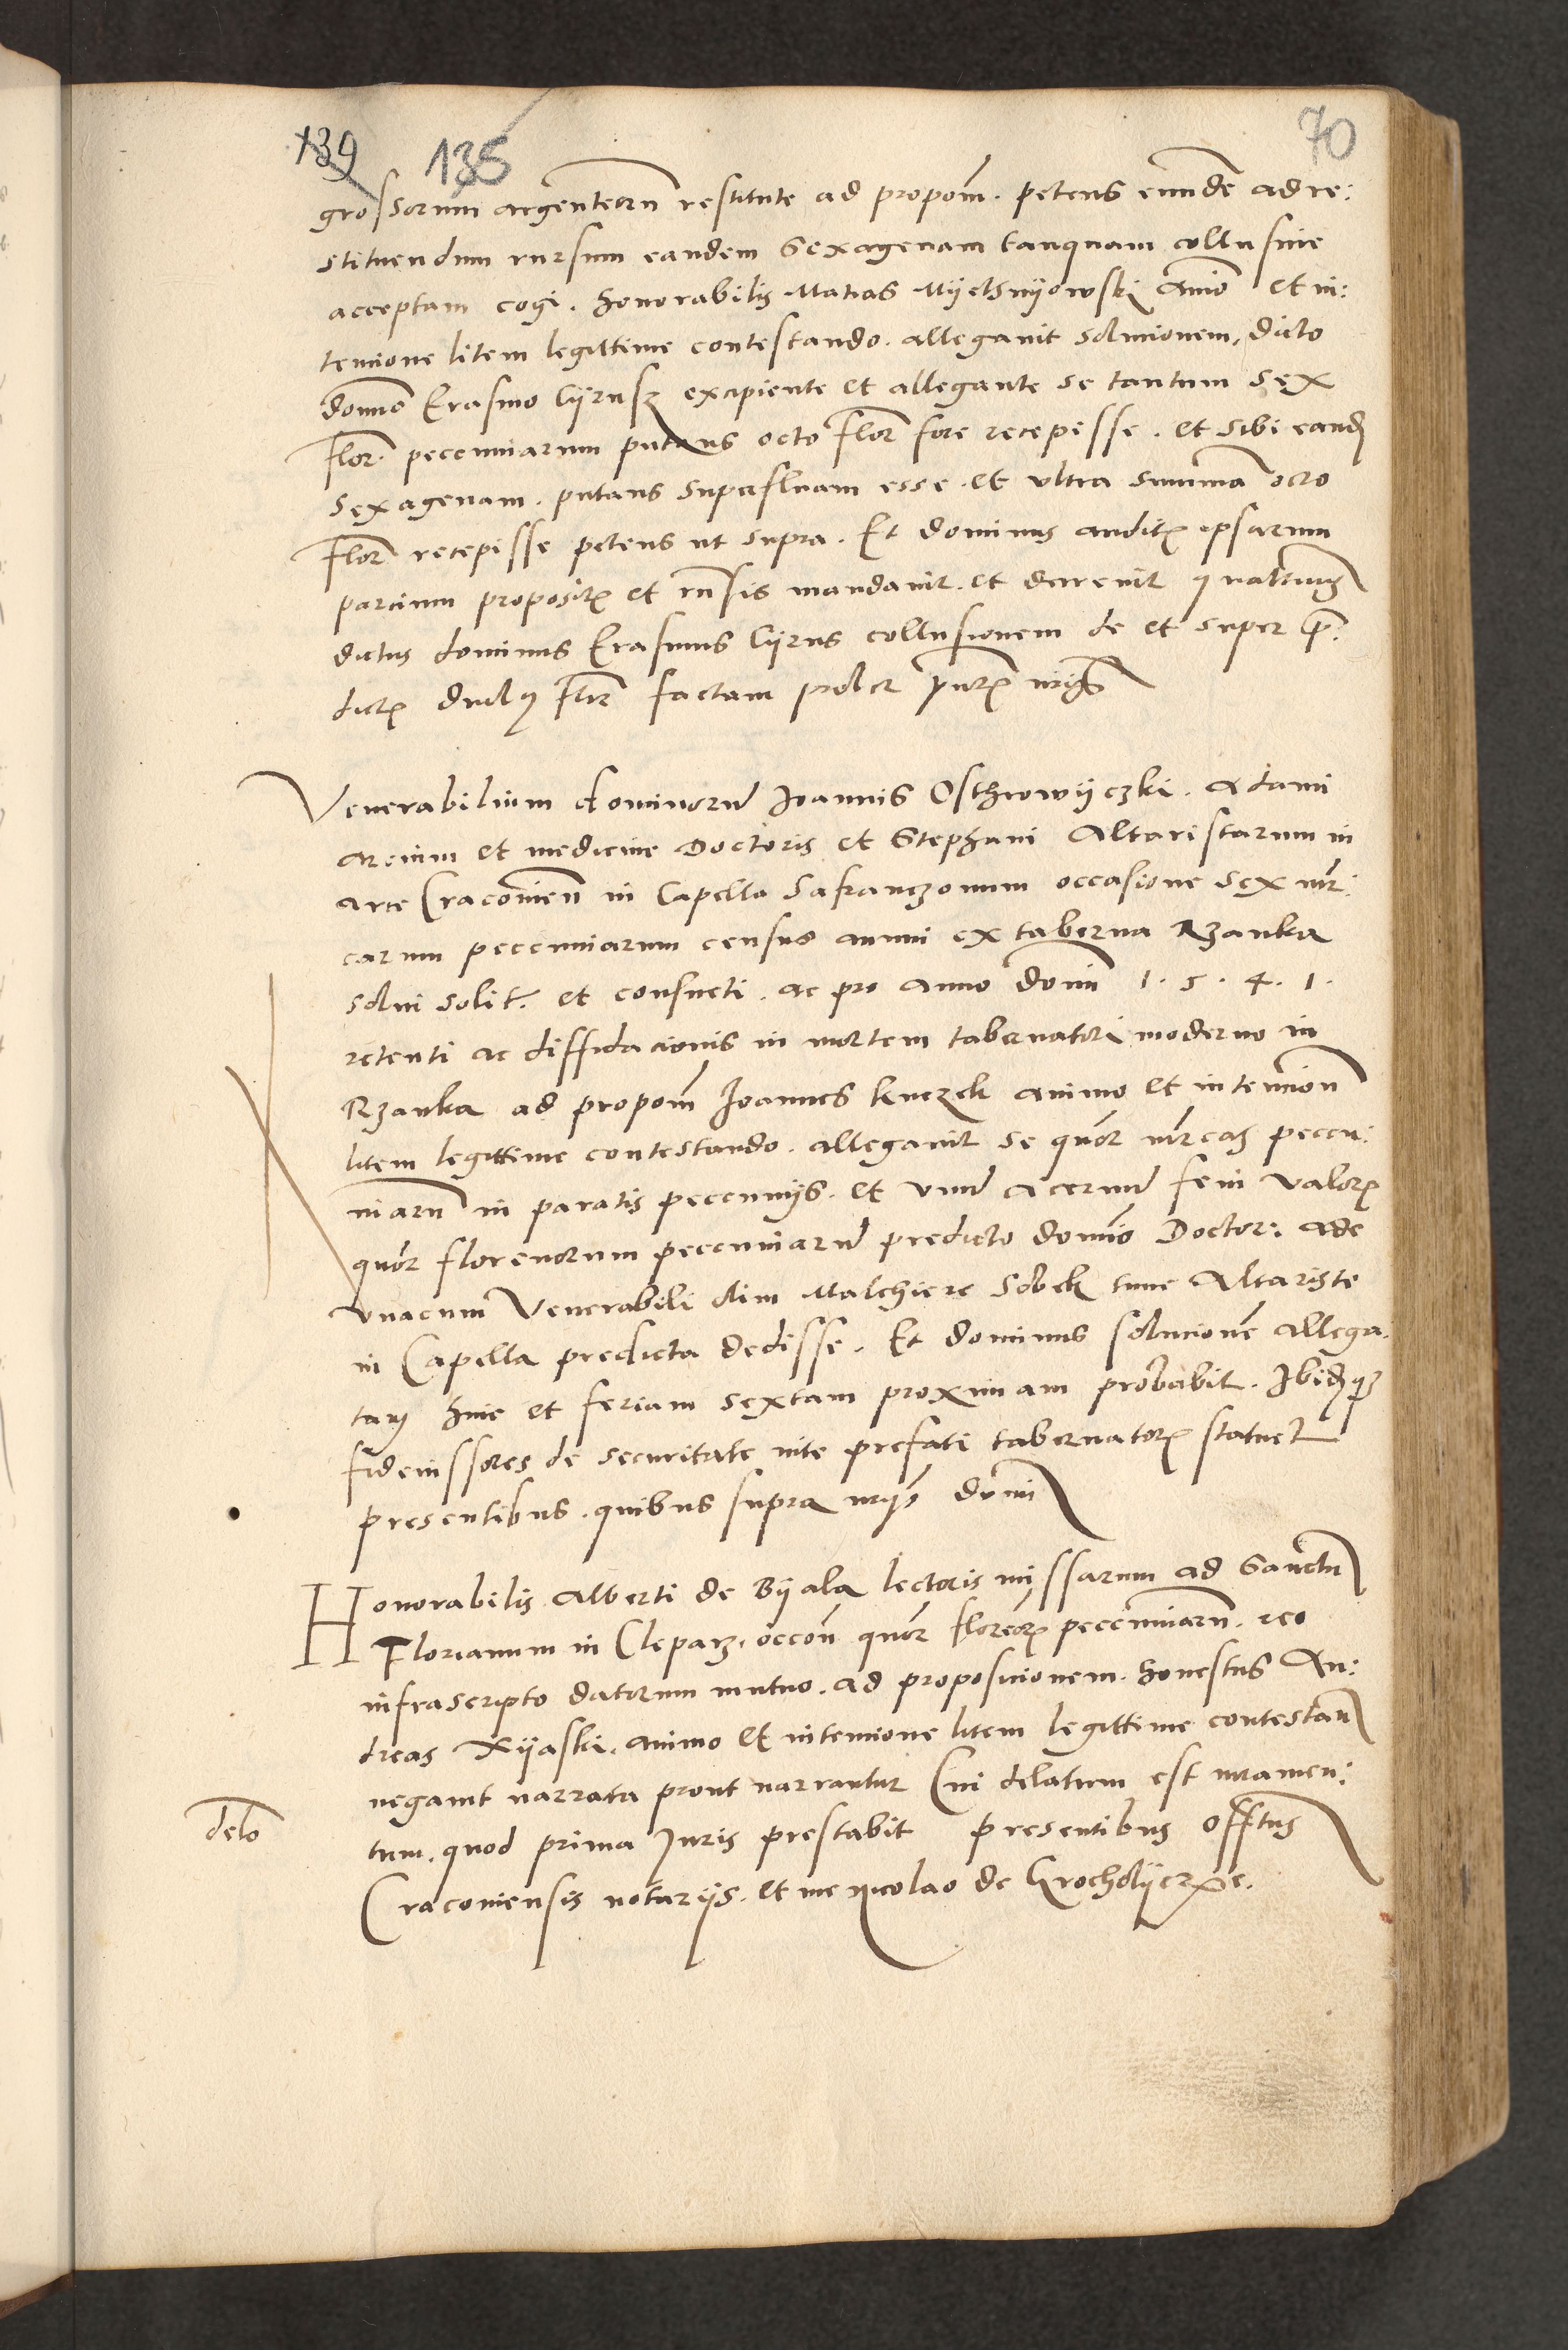 139 135 70
grossorum argenteorū restitute ad propoēm. petens eundē ad re:
stituendum rursum eandem sexagenam tanquam collusive
acceptam cogi. honorabilis Matias Myelsnyowski aīo et in:
tencione litem legittime contestando. allegavit solucionem, dicto
domīo Erasmo Cyrusz excipiente et allegante se tantum sex
flor. pecuniarum putans octo flor fore recepisse. et sibi eandē
sexagenam. putans superfluam esse. et ultra summā octo
flor recepisse petens ut supra. Et dominus auditꝭ ipsarum
parcium propositꝭ et rn̄sis mandavit. et decrevit quatenus
dictus dominus Erasmus Cyrus collusionem de et super p̄:
dictꝭ duobꝫ flor factam probet
Venerabilium dominorū Joannis Osthrowyczki. Adami
arcium et medicine Doctoris et Stephani Altaristarum in
arce Cracovien̄ in Capella Safranczonum occasione sex mr̄:
carum pecuniarum census annui ex taberna Rzanka
solvi solit. et consueti. ac pro anno domī 1.5.4.1.
retenti ac diffidacionis in mortem tabernatori moderno in
Rzanka ad propoēm Joannes Kuczek animo et intencion̄
litem legittime contestando. allegavit se quōr mr̄cas pecu:
niarū in paratis pecuniys. et unū acervū feni valorꝭ
quōr florenorum pecuniarū predicto domīo Doctor: Ade
unacum Venerabili olim Malchiere Sobek tunc Altariste
in Capella predicta dedisse. Et dominus solucionē allega.
tam hinc et feriam sextam proximam probabit. Ibidēqꝫ
fideiussores de securitate vite prefati tabernatorꝭ statuet
presentibus. quibus supra
Honorabilis Alberti de Byala lectoris missarum ad Sanctū
Florianum in Cleparz. occoñ quōr florēorꝭ pecuniarū. reo
infrascripto datorum mutuo. ad proposicionem. honestus An:
dreas Xyaski. animo et intencione litem legittime contestan̄
negavit narrata prout narrantur Cui delatum est iuramen:
delo
tum. quod prima Juris prestabit presentibus
Cracoviensis notariys. et me Nicolao de Grocholycze.